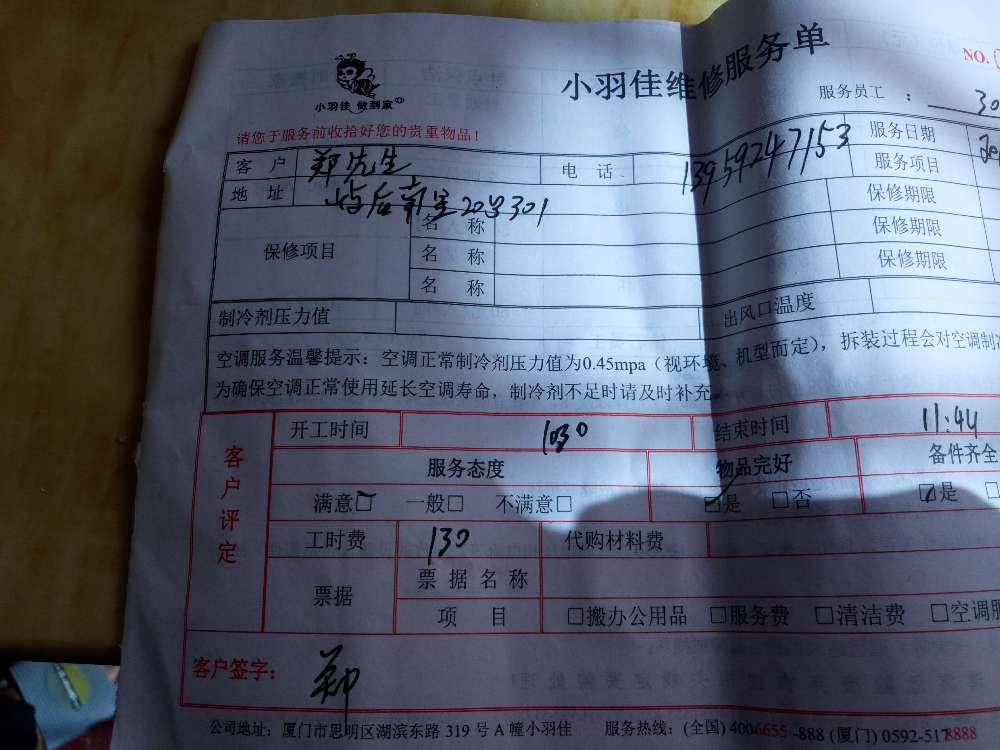 小羽佳 做到家
小羽佳维修服务单
NO.
服务员工 : 30
请您于服务前收拾好您的贵重物品!
客户 郑先生 电话 13959247153 服务日期
地址 后南里20号301 服务项目
保修项目 名称 保修期限
名称 保修期限
名称 保修期限
制冷剂压力值 出风口温度
空调服务温馨提示:空调正常制冷剂压力值为0.45mpa(视环境、机型而定),拆装过程会对空调制冷
为确保空调正常使用延长空调寿命,制冷剂不足时请及时补充
客户评定
开工时间 1030 结束时间 11:44
服务态度 物品完好 备件齐全
满意☑ 一般□ 不满意□ ☑是 □否 ☑是
工时费 130 代购材料费
票据 票据名称
项目 □搬办公用品 □服务费 □清洁费 □空调服
客户签字: 郑
公司地址:厦门市思明区湖滨东路 319 号 A 幢小羽佳 服务热线:(全国) 4006655-888 (厦门) 0592-5178888